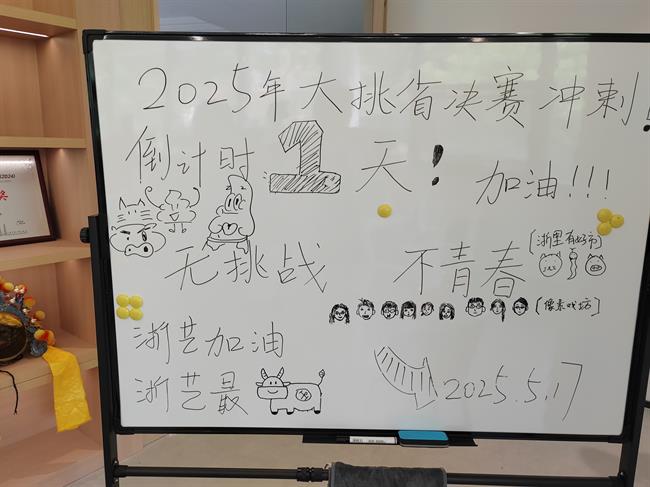 2025年大挑省决赛冲刺!
倒计时1天!
加油!!!
无挑战 不青春
(浙里有好市)
(像素戏坊)
浙艺加油
浙艺最
2025.5.17